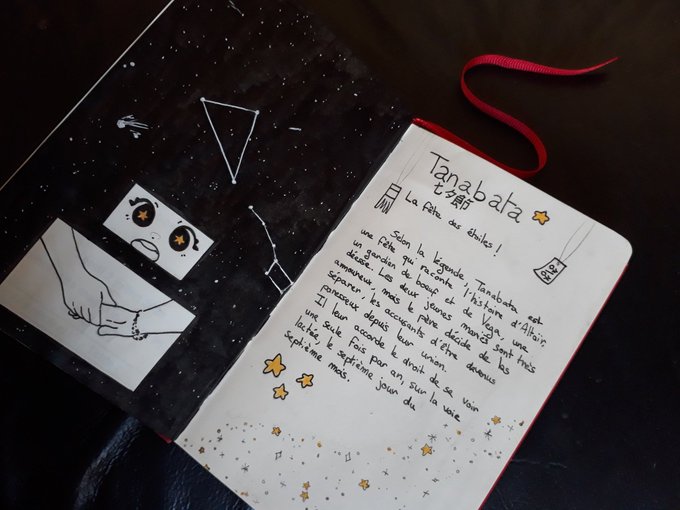 Tanabata
七夕節
La fête des étoiles !
Selon la légende, Tanabata est
une fête qui raconte l'histoire d'Altaïr,
un gardien de boeuf et de Vega, une
déesse. Les deux jeunes mariés sont très
amoureux, mais le Père décide de les
séparer, les accusants d'être devenus
paresseux depuis leur union.
Il leur accorde le droit de se voir
une seule fois par an, sur la voie
lactée, le septième jour du
septième mois.